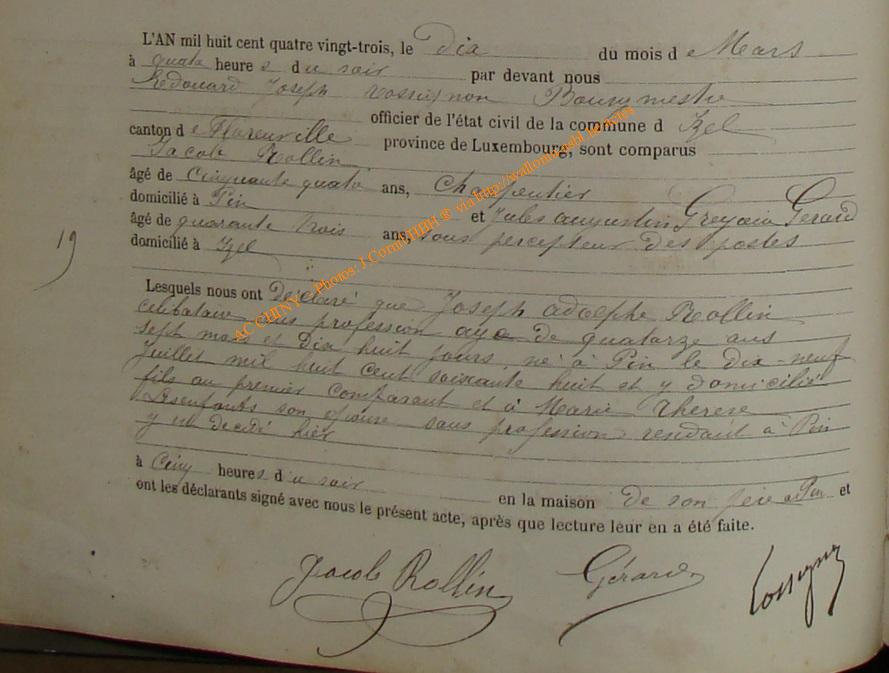 L'AN mil huit cent quatre vingt-trois, le Dix du mois de Mars
à quatre heures du soir par devant nous
Edouard Joseph Rossignon Bourgmestre
officier de l'état civil de la commune d Izel
canton de Florenville province de Luxembourg, sont comparus
Jacob Rollin
âgé de Cinquante quatre ans, Charpentier
domicilié à Pin et Jules Augustin Gérard
âgé de quarante trois ans, sous percepteur des postes
domicilié à Izel
19
Lesquels nous ont Déclaré que Joseph Adolphe Rollin
célibataire sans profession âgé de quatorze ans
sept mois et dix huit jours, né à Pin le dix-neuf
Juillet mil huit cent soixante huit et y domicilié
fils au premier comparant et à Marie Thérèse
Desenfants son épouse sans profession résidant à Pin
y est décédé hier
à Cinq heures du soir en la maison de son père à Pin et
ont les déclarants signé avec nous le présent acte, après que lecture leur en a été faite.
Jacob Rollin Gérard Rossignon
ACCHINY - Photos: J.Com via http://wallonica